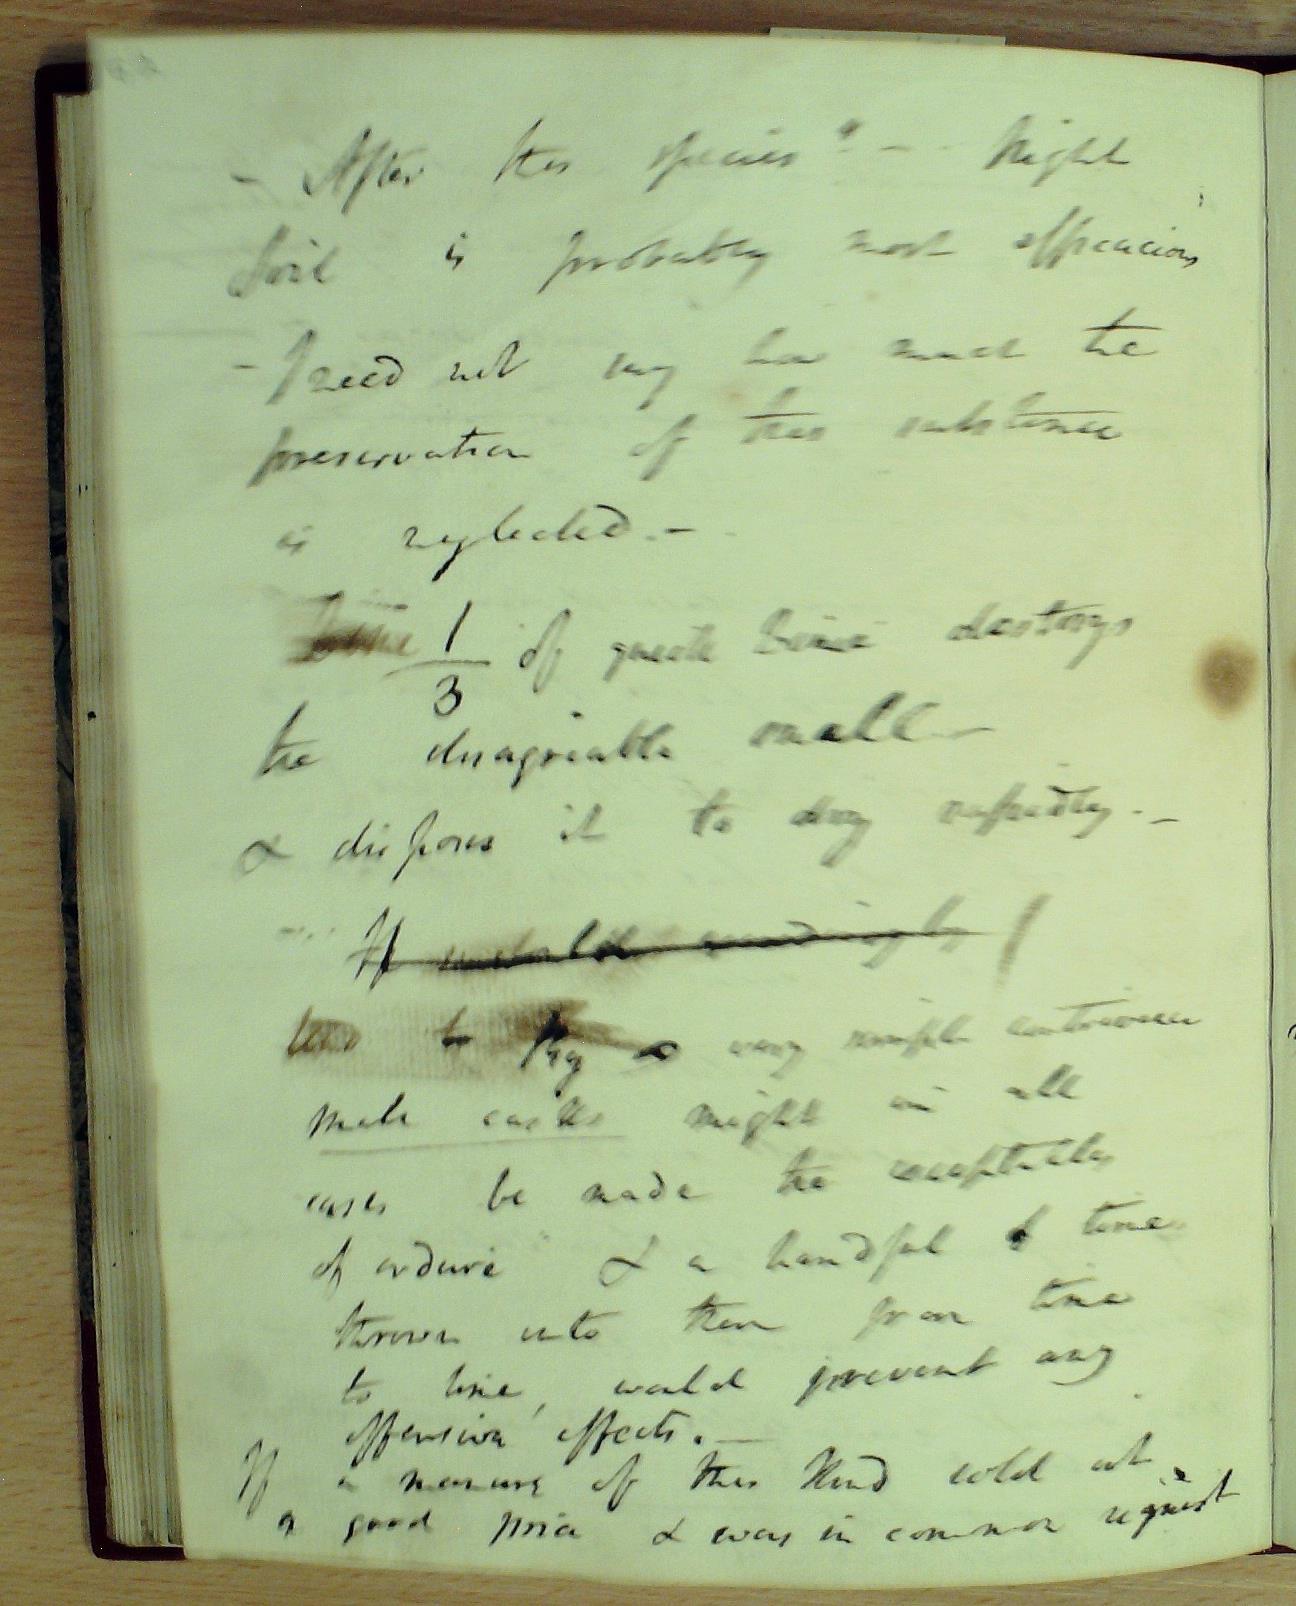 - After this species" - - Night
Soil is probably most efficacious
- I need not say how much the
preservation of this substance
is neglected. -
1/3 of quick Lime destroys
the disagreable smell -
& disposes it to dry rapidly. -
If
to by a very simple contrivance
might in all
cases be made the receptacles
of ordure & a handful of lime
thrown into them from time
to time, would prevent any
offensive effects. -
If a manure of this Kind sold at
a good price & was in common request